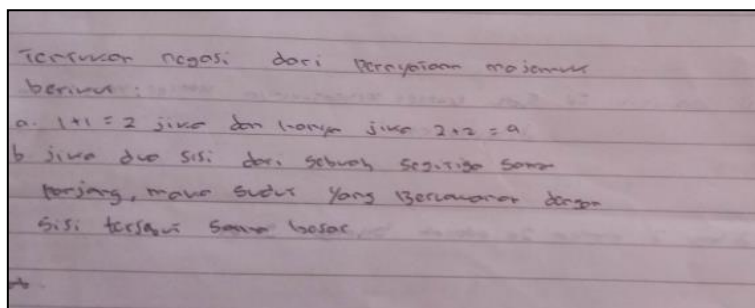 Tentukan negasi dari pernyataan majemuk
berikut :
a. 1+1 = 2 jika dan hanya jika 2+2 = 4
b jika dua sisi dari sebuah segitiga sama
panjang, maka sudut yang Berlawanan dengan
sisi tersebut sama besar